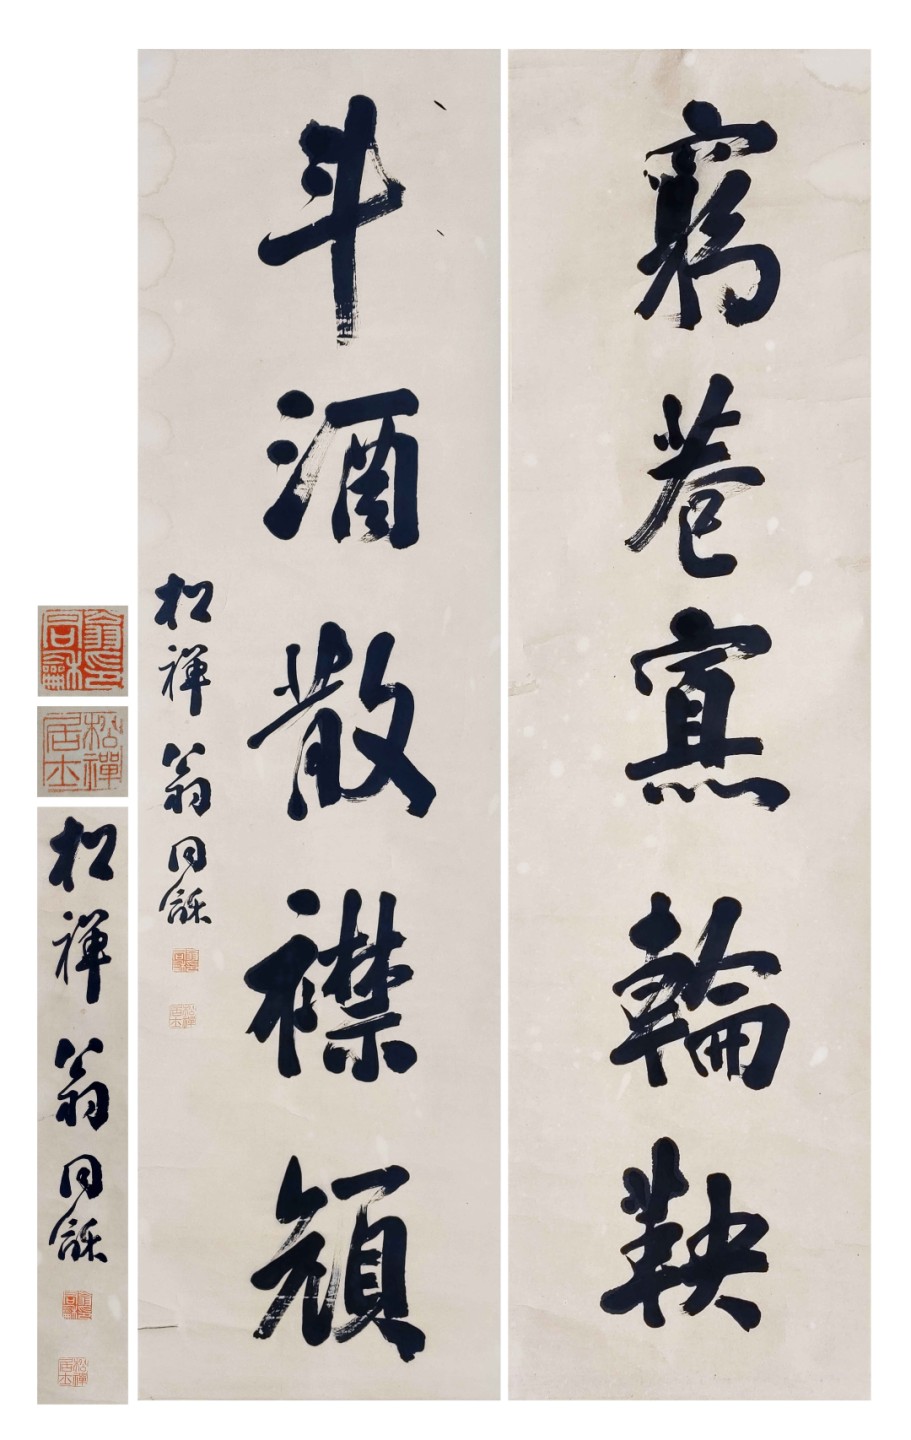 窮巷寡輪鞅
斗酒散襟顏
松禪翁同龢
翁同龢印
松禪居士
松禪翁同龢